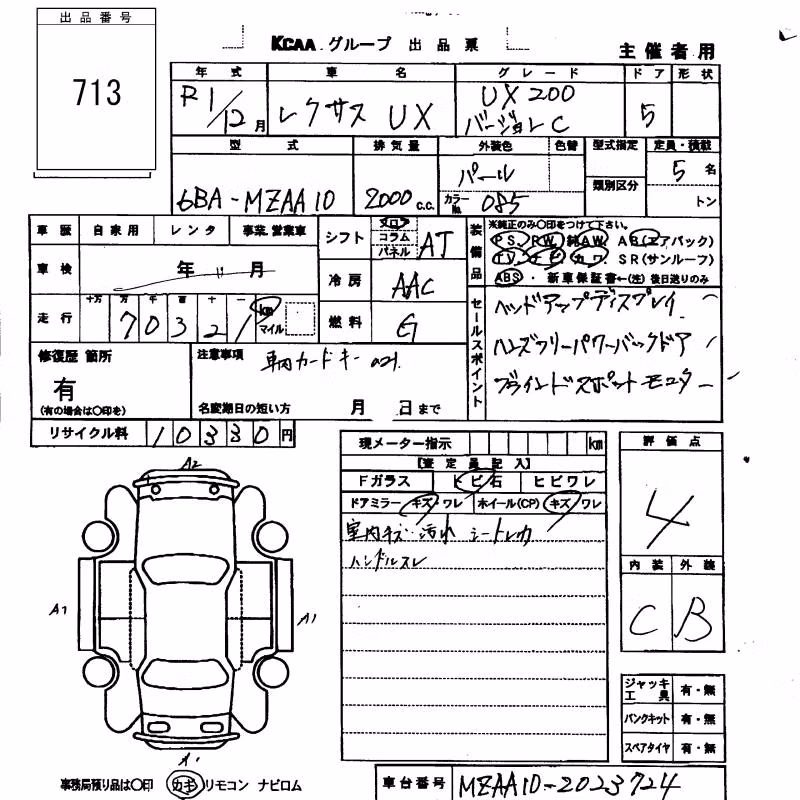 出品番号
713
KCAA グループ 出品票
主催者用
年式 車名 グレード ドア 形状
R1/12月 レクサス UX UX200 バージョンC 5
型式 排気量 外装色 色替 型式指定 定員・積載
6BA-MZAA10 2000c.c. パール 5名
カラーNo. 085 類別区分 トン
車歴 自家用 レンタ 事業.営業車
シフト フロア コラム パネル AT
装備品
※純正のみ〇印をつけて下さい。
P S. P W. 純A W. A B(エアバック)
T V. ナ ビ. カ ワ. S R(サンルーフ)
ABS. 新車保証書←(注)後日送りのみ
車検 年 月
冷房 AAC
走行 十万 万 千 百 十 一
70321 km マイル
燃料 G
セールスポイント
ヘッドアップディスプレイ
ハンズフリーパワーバックドア
ブラインドスポットモニター
修復歴 箇所
有
(有の場合は〇印を)
注意事項
車両カードキー
名変期日の短い方 月 日まで
リサイクル料 10330円
現メーター指示 km
【査定員記入】
Fガラス トビ石 ヒビワレ
ドアミラー キズ・ワレ ホイール(CP) キズ・ワレ
室内キズ・汚れ
ハンドルスレ
評価点
4
内装 外装
C B
A2
A1
A1
A1
ジャッキ工具 有・無
パンクキット 有・無
スペアタイヤ 有・無
事務局預り品は〇印 カギ リモコン ナビロム
車台番号 MZAA10-2023724